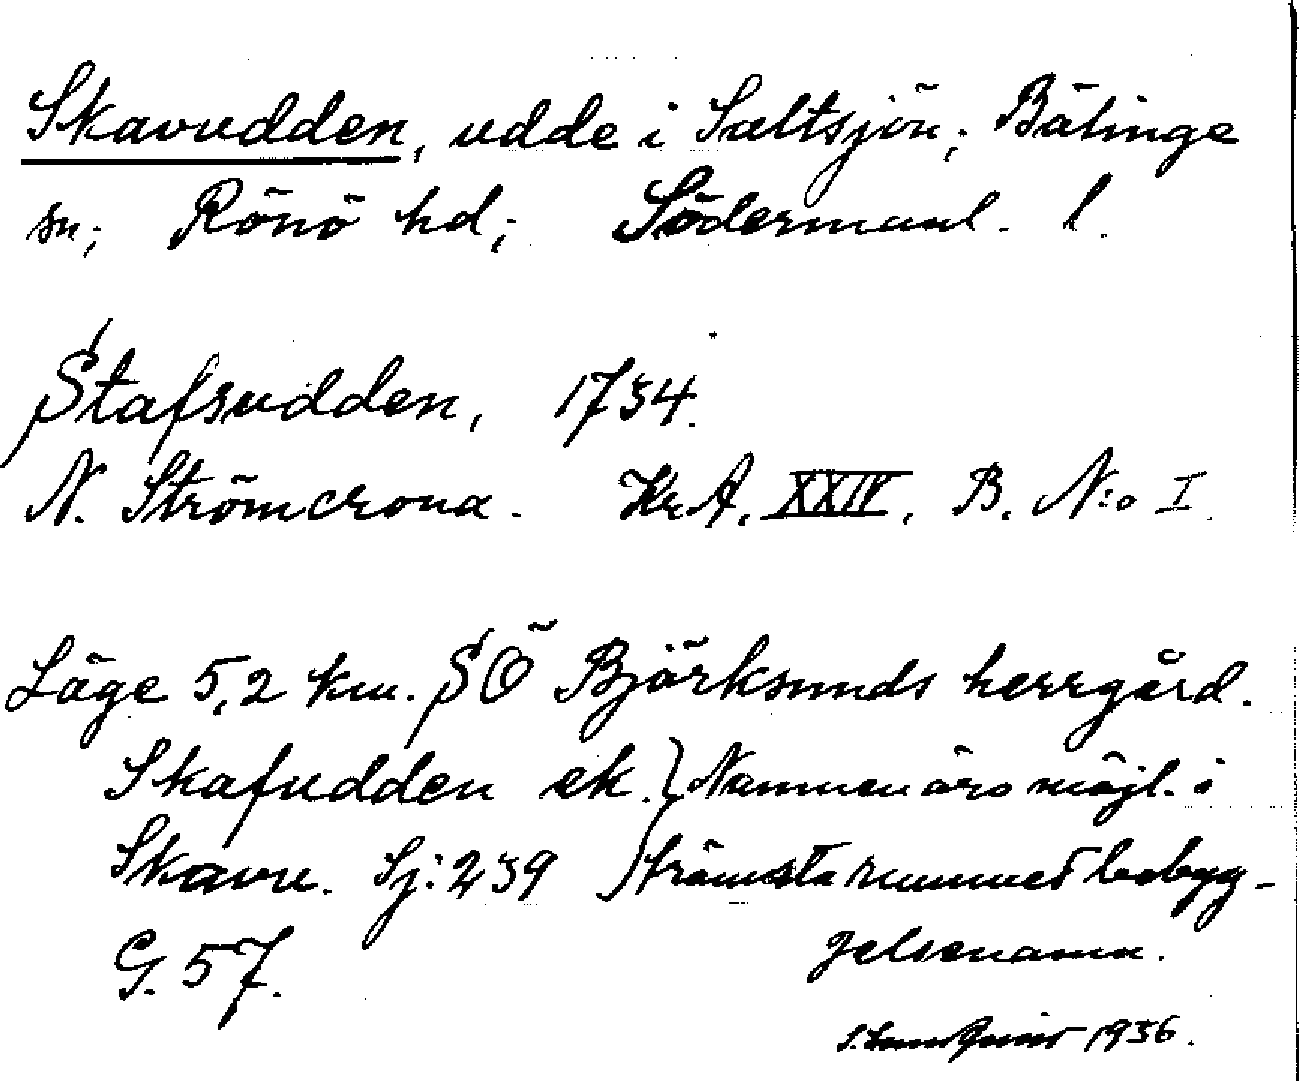 Skavudden, udde i Saltsjön; Bälinge
sn; Rönö hd; Södermanl. l.
Stafsudden, 1734.
N. Strömcrona. Kr.A. XXIV. B. N:o I.
Läge 5,2 km. SÖ Björksunds herrgård.
Skafudden ek. } Namnen äro möjl. i
Skavu. Sj: 239 främsta rummet bebyg-
G. 57. gelsenamn.
S. Lundqvist 1936.